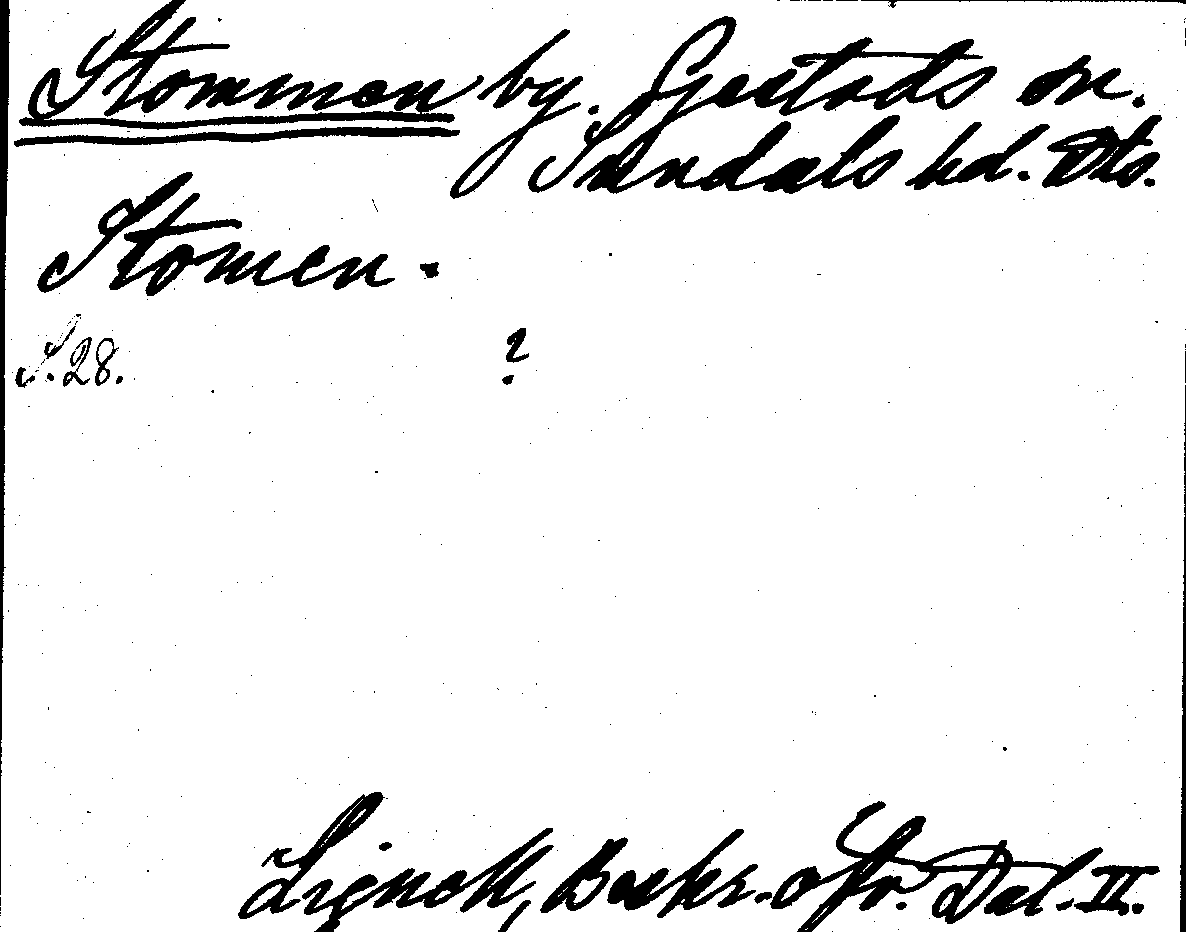 Stommen by. Gestads sn.
Sundals hd. Dls.
Stomen.
S. 28. ?
Lignell, Beskr. öfv. Dal. II.